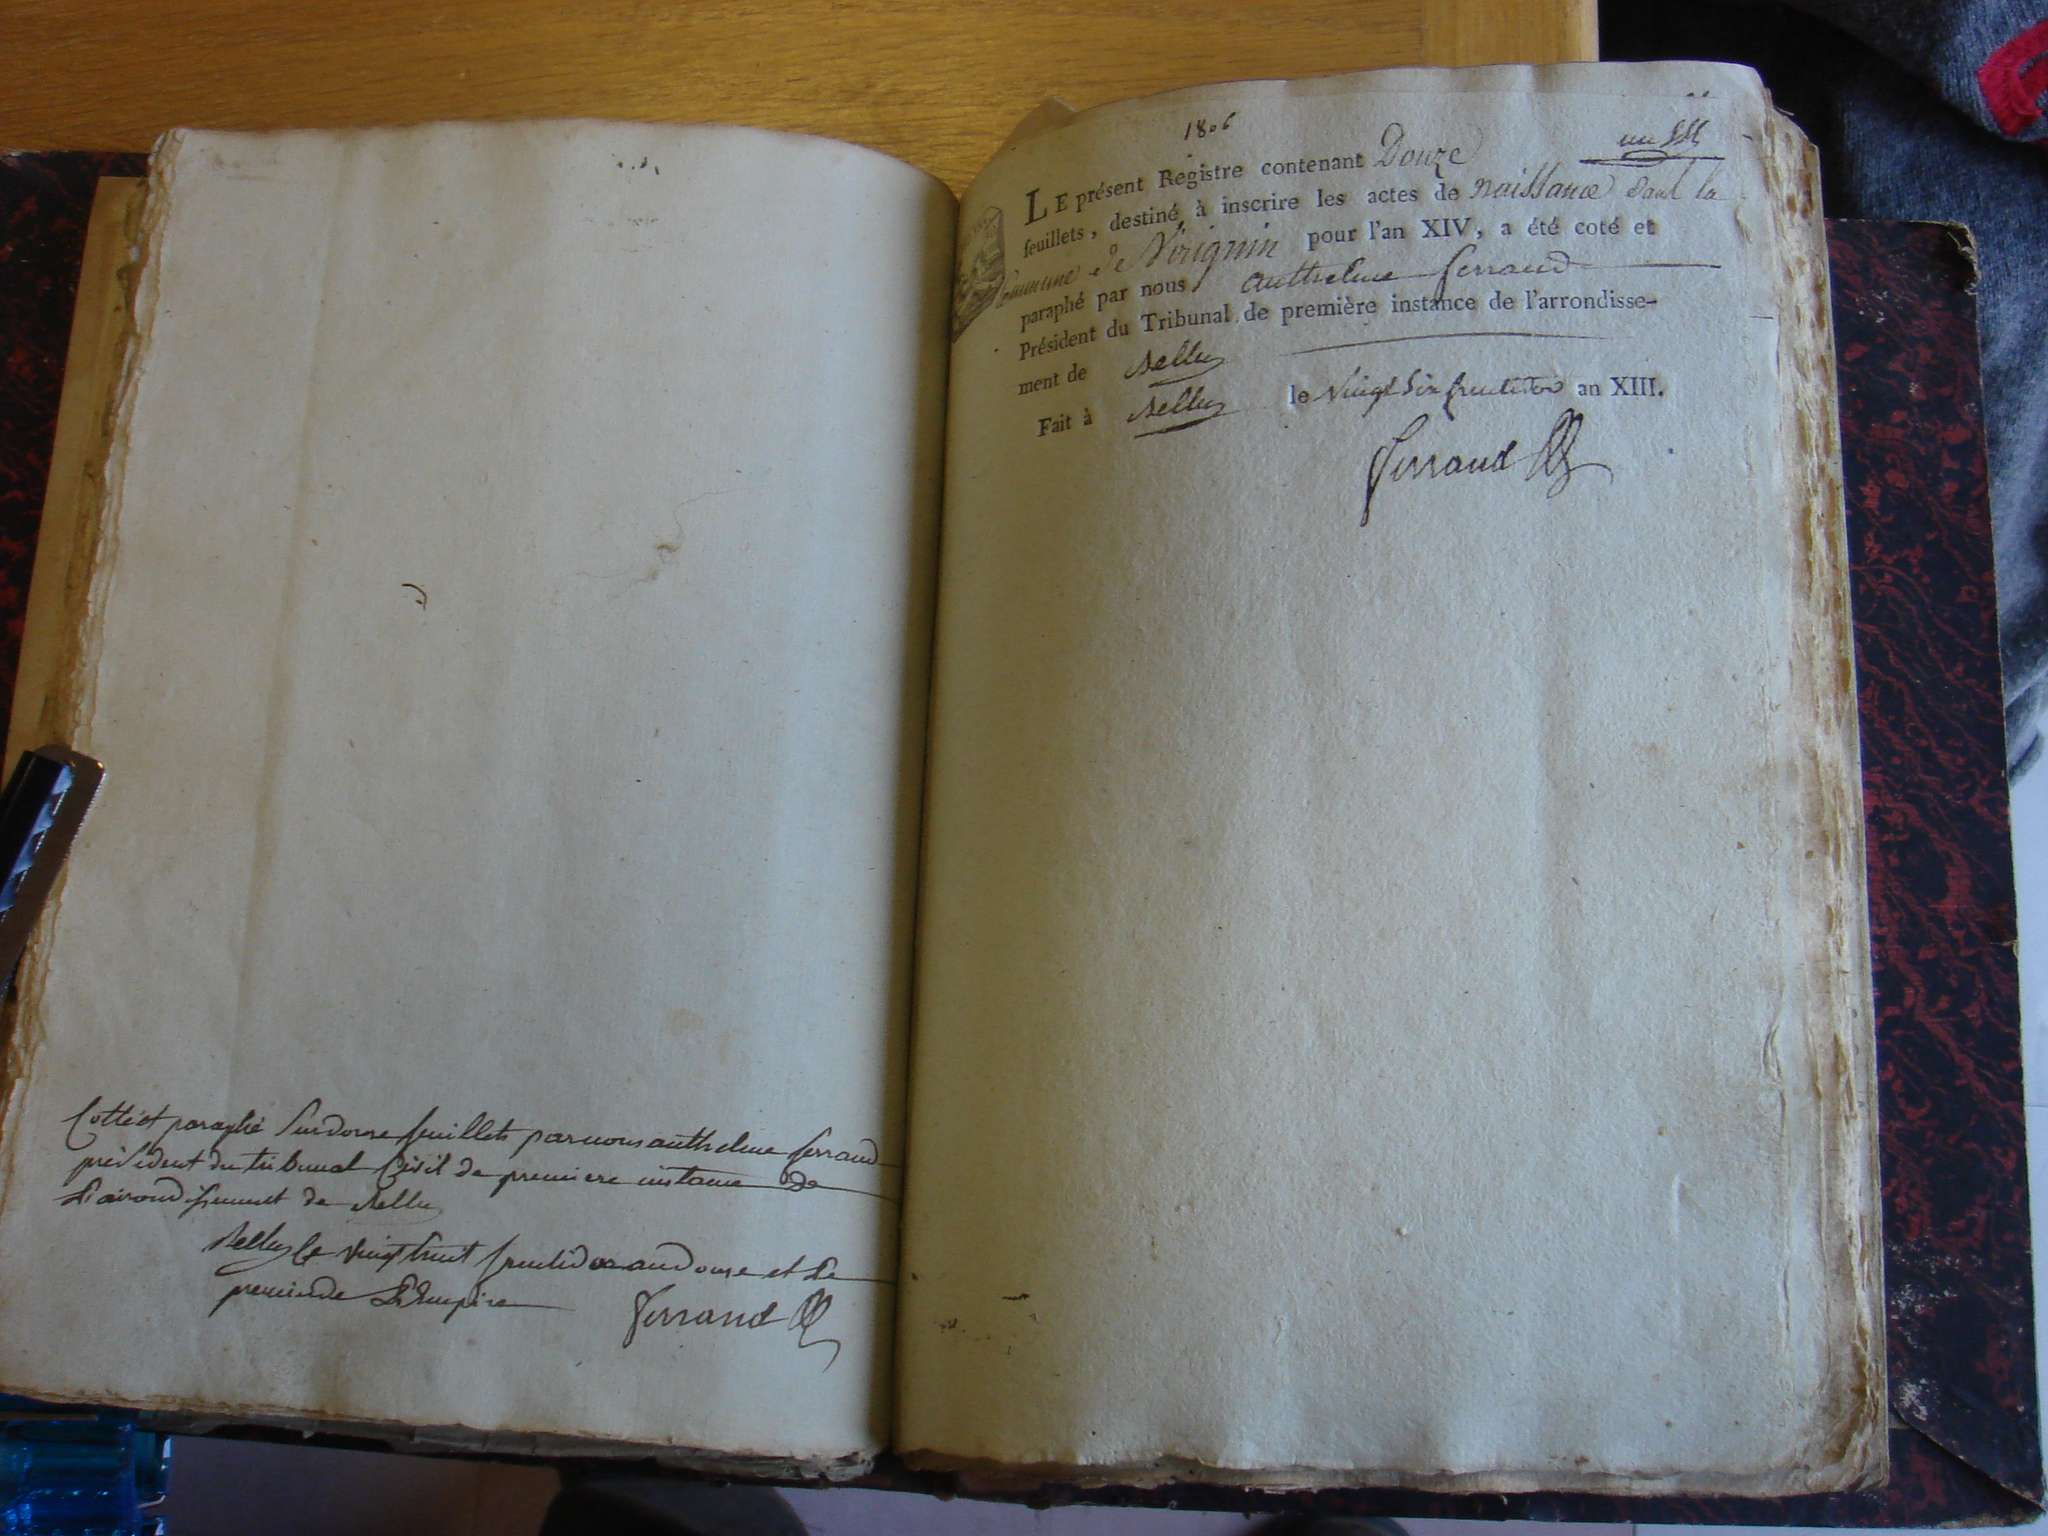 Cotté et paraphé sur douse feuillets par nous anthelme ferrand
président du tribunal Civil de premiere instance de
L'arrondissement de Belley
Belley le vingt huit fructidor an douse et Le
premier de L'Empire Ferrand
1806
un
LE présent Registre contenant Douze
feuillets, destiné à inscrire les actes de naissance dans la
Commune de Virignin pour l'an XIV, a été coté et
paraphé par nous anthelme ferrand
Président du Tribunal de première instance de l'arrondisse-
ment de Belley
Fait à Belley le vingt six fructidor an XIII.
Ferrand